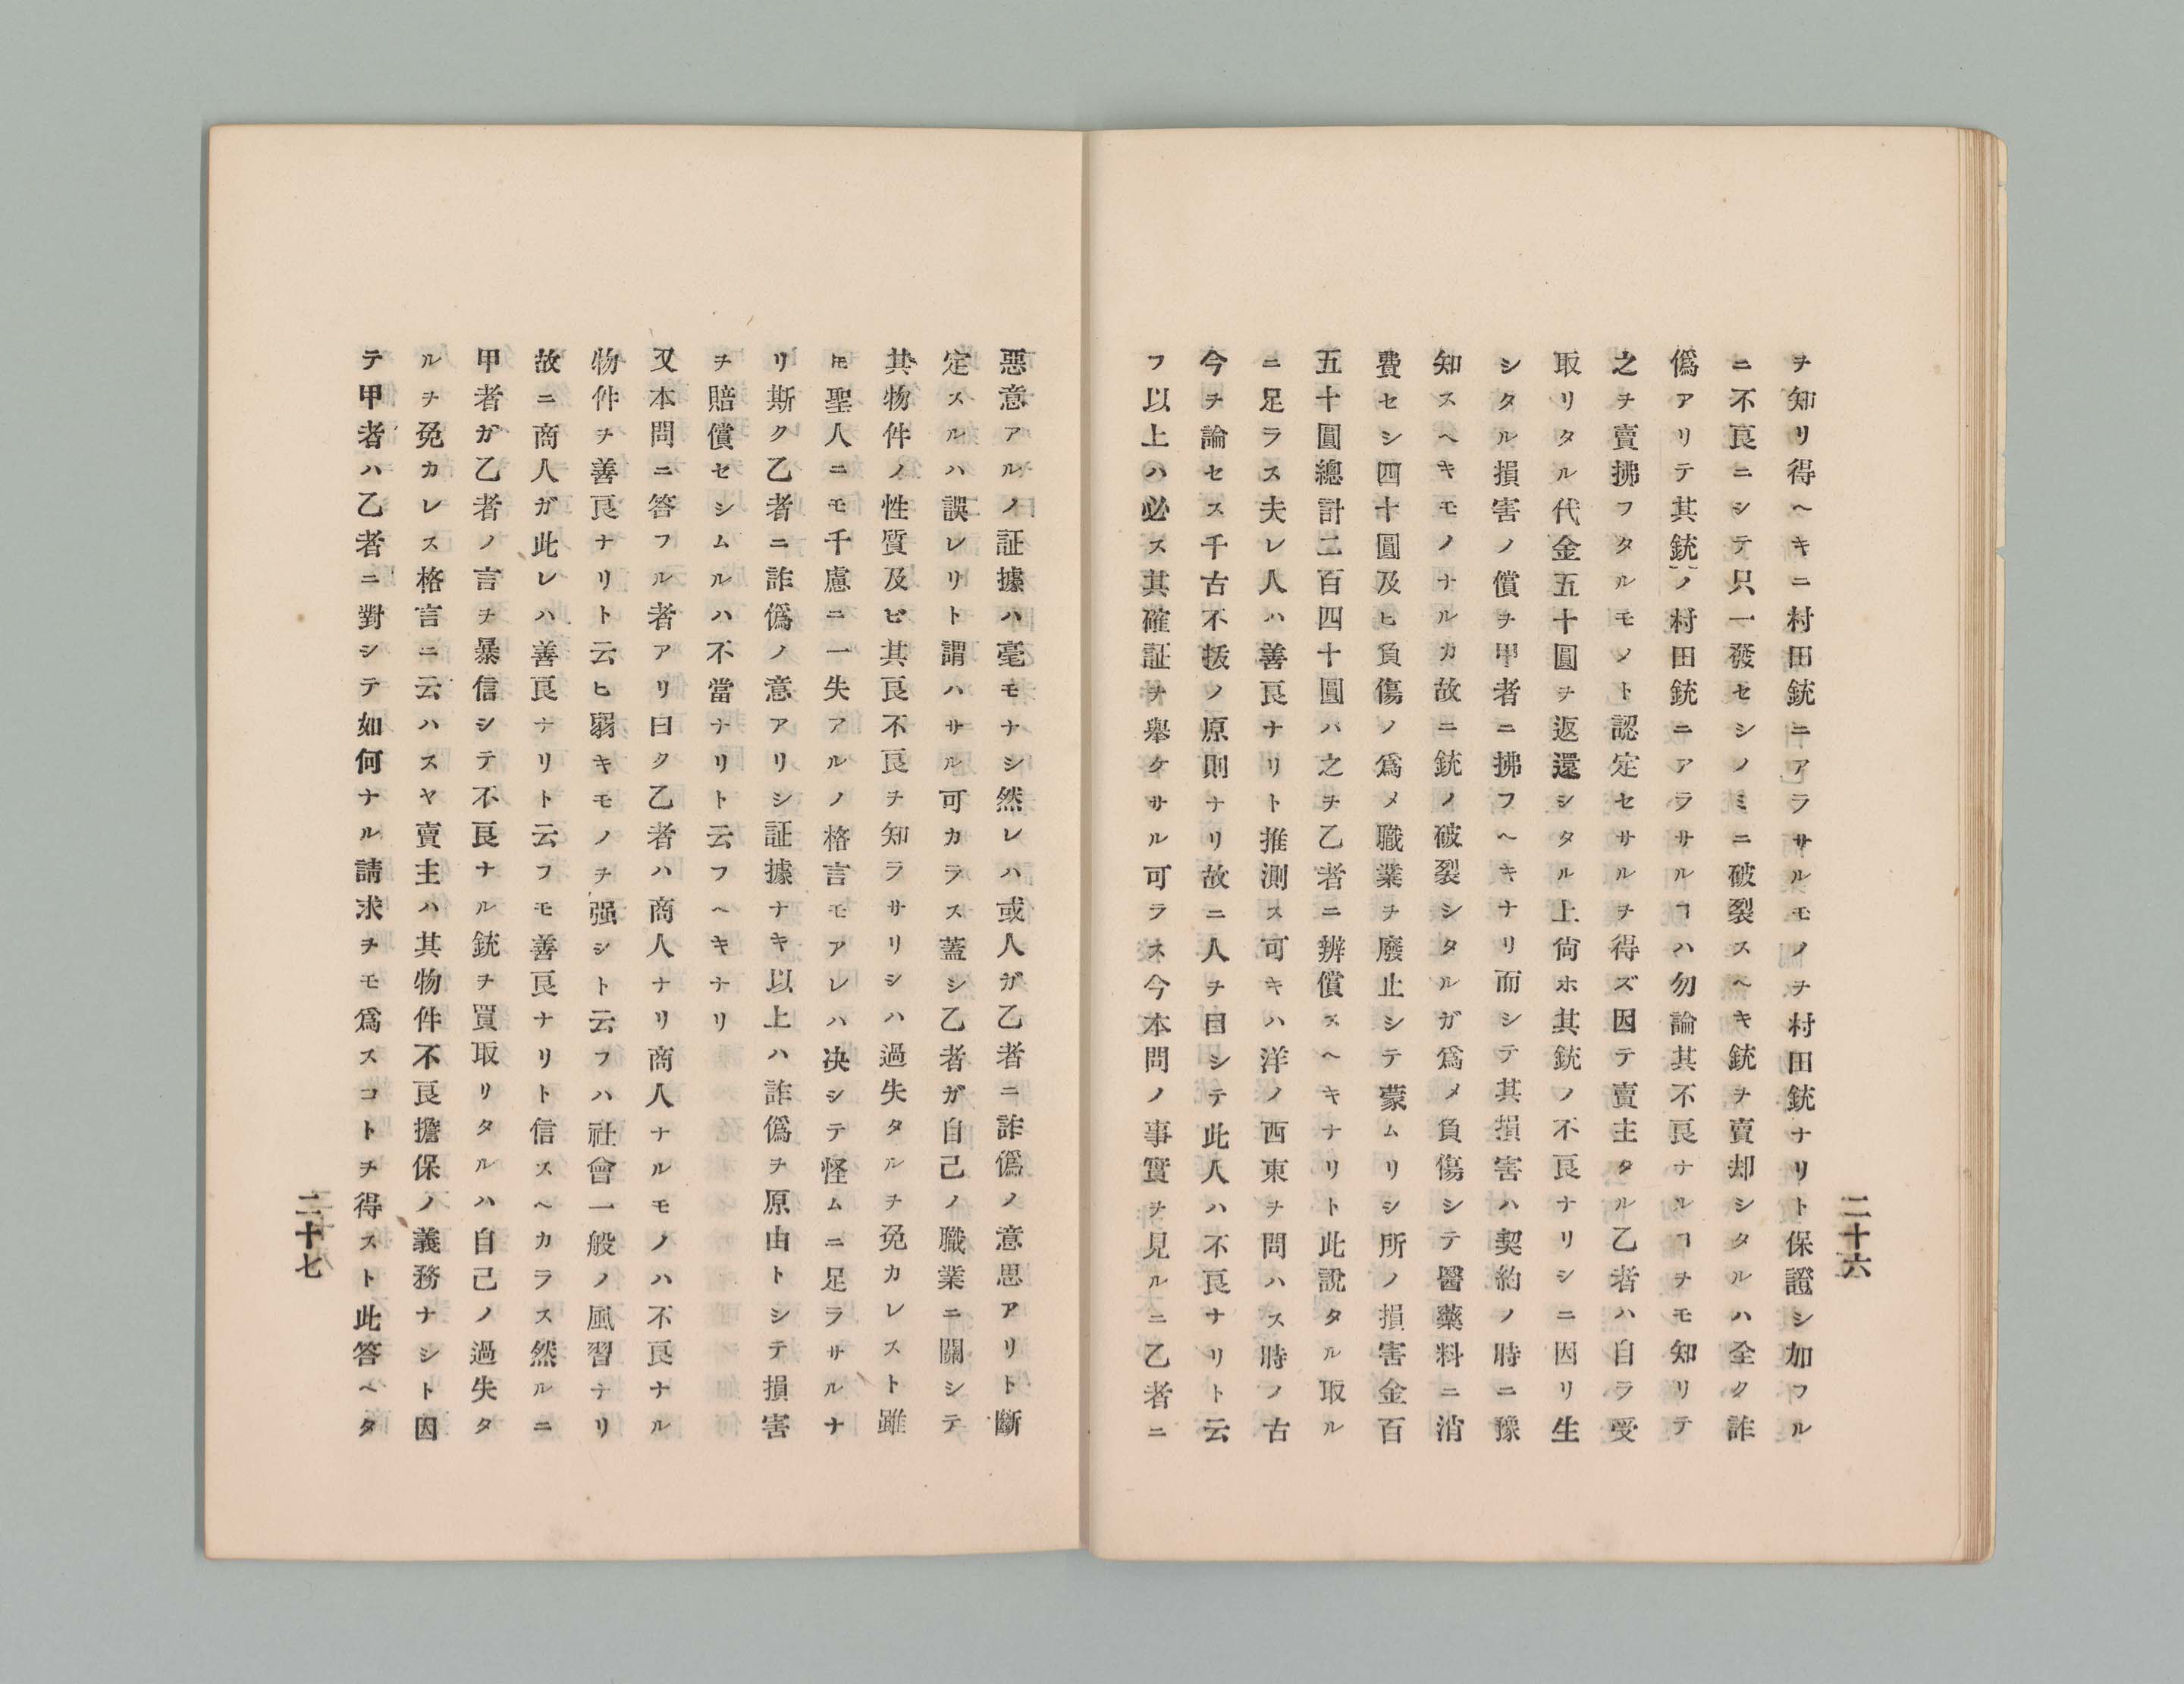 二十六
ヲ知リ得ヘキニ村田銃ニアラサルモノヲ村田銃ナリト保證シ加フル
ニ不良ニシテ只一發セシノミニ破裂スヘキ銃ヲ賣却シタルハ全ク詐
僞アリテ其銃ノ村田銃ニアラサルヿハ勿論其不良ナルヿヲモ知リテ
之ヲ賣拂フタルモノト認定セサルヲ得ズ因テ賣主タル乙者ハ自ラ受
取リタル代金五十圓ヲ返還シタル上尙ホ其銃ノ不良ナリシニ因リ生
シタル損害ノ償ヲ甲者ニ拂フヘキナリ而シテ其損害ハ契約ノ時ニ豫
知スヘキモノナルカ故ニ銃ノ破裂シタルガ爲メ負傷シテ醫藥料ニ消
費セシ四十圓及ヒ負傷ノ爲メ職業ヲ廢止シテ蒙ムリシ所ノ損害金百
五十圓總計二百四十圓バ之ヲ乙者ニ辨償スヘキナリト此說タル取ル
ニ足ラス夫レ人ハ善良ナリト推測ス可キハ洋ノ西東ヲ問ハス時ノ古
今ヲ論セス千古不拔ノ原則ナリ故ニ人ヲ目シテ此人ハ不良ナリト云
フ以上ハ必ス其確証ヲ擧ケサル可ラス今本問ノ事實ヲ見ルニ乙者ニ
惡意アルノ証據ハ毫モナシ然レハ或人ガ乙者ニ詐僞ノ意思アリト斷
定スルハ誤レリト謂ハサル可カラス蓋シ乙者ガ自己ノ職業ニ關シテ
其物件ノ性質及ビ其良不良ヲ知ラサリシハ過失タルヲ免カレスト雖
𪜈聖人ニモ千慮ニ一失アルノ格言モアレハ决シテ怪ムニ足ラサルナ
リ斯ク乙者ニ詐僞ノ意アリシ証據ナキ以上ハ詐僞ヲ原由トシテ損害
ヲ賠償セシムルハ不當ナリト云フヘキナリ
又本問ニ答フル者アリ曰ク乙者ハ商人ナリ商人ナルモノハ不良ナル
物件ヲ善良ナリト云ヒ弱キモノヲ强シト云フハ社會一般ノ風習ナリ
故ニ商人ガ此レハ善良ナリト云フモ善良ナリト信スヘカラス然ルニ
甲者ガ乙者ノ言ヲ暴信シテ不良ナル銃ヲ買取リタルハ自己ノ過失タ
ルヲ免カレス格言ニ云ハスヤ賣主ハ其物件不良擔保ノ義務ナシト因
テ甲者ハ乙者ニ對シテ如何ナル請求ヲモ爲スコトヲ得スト此答ヘタ
二十七